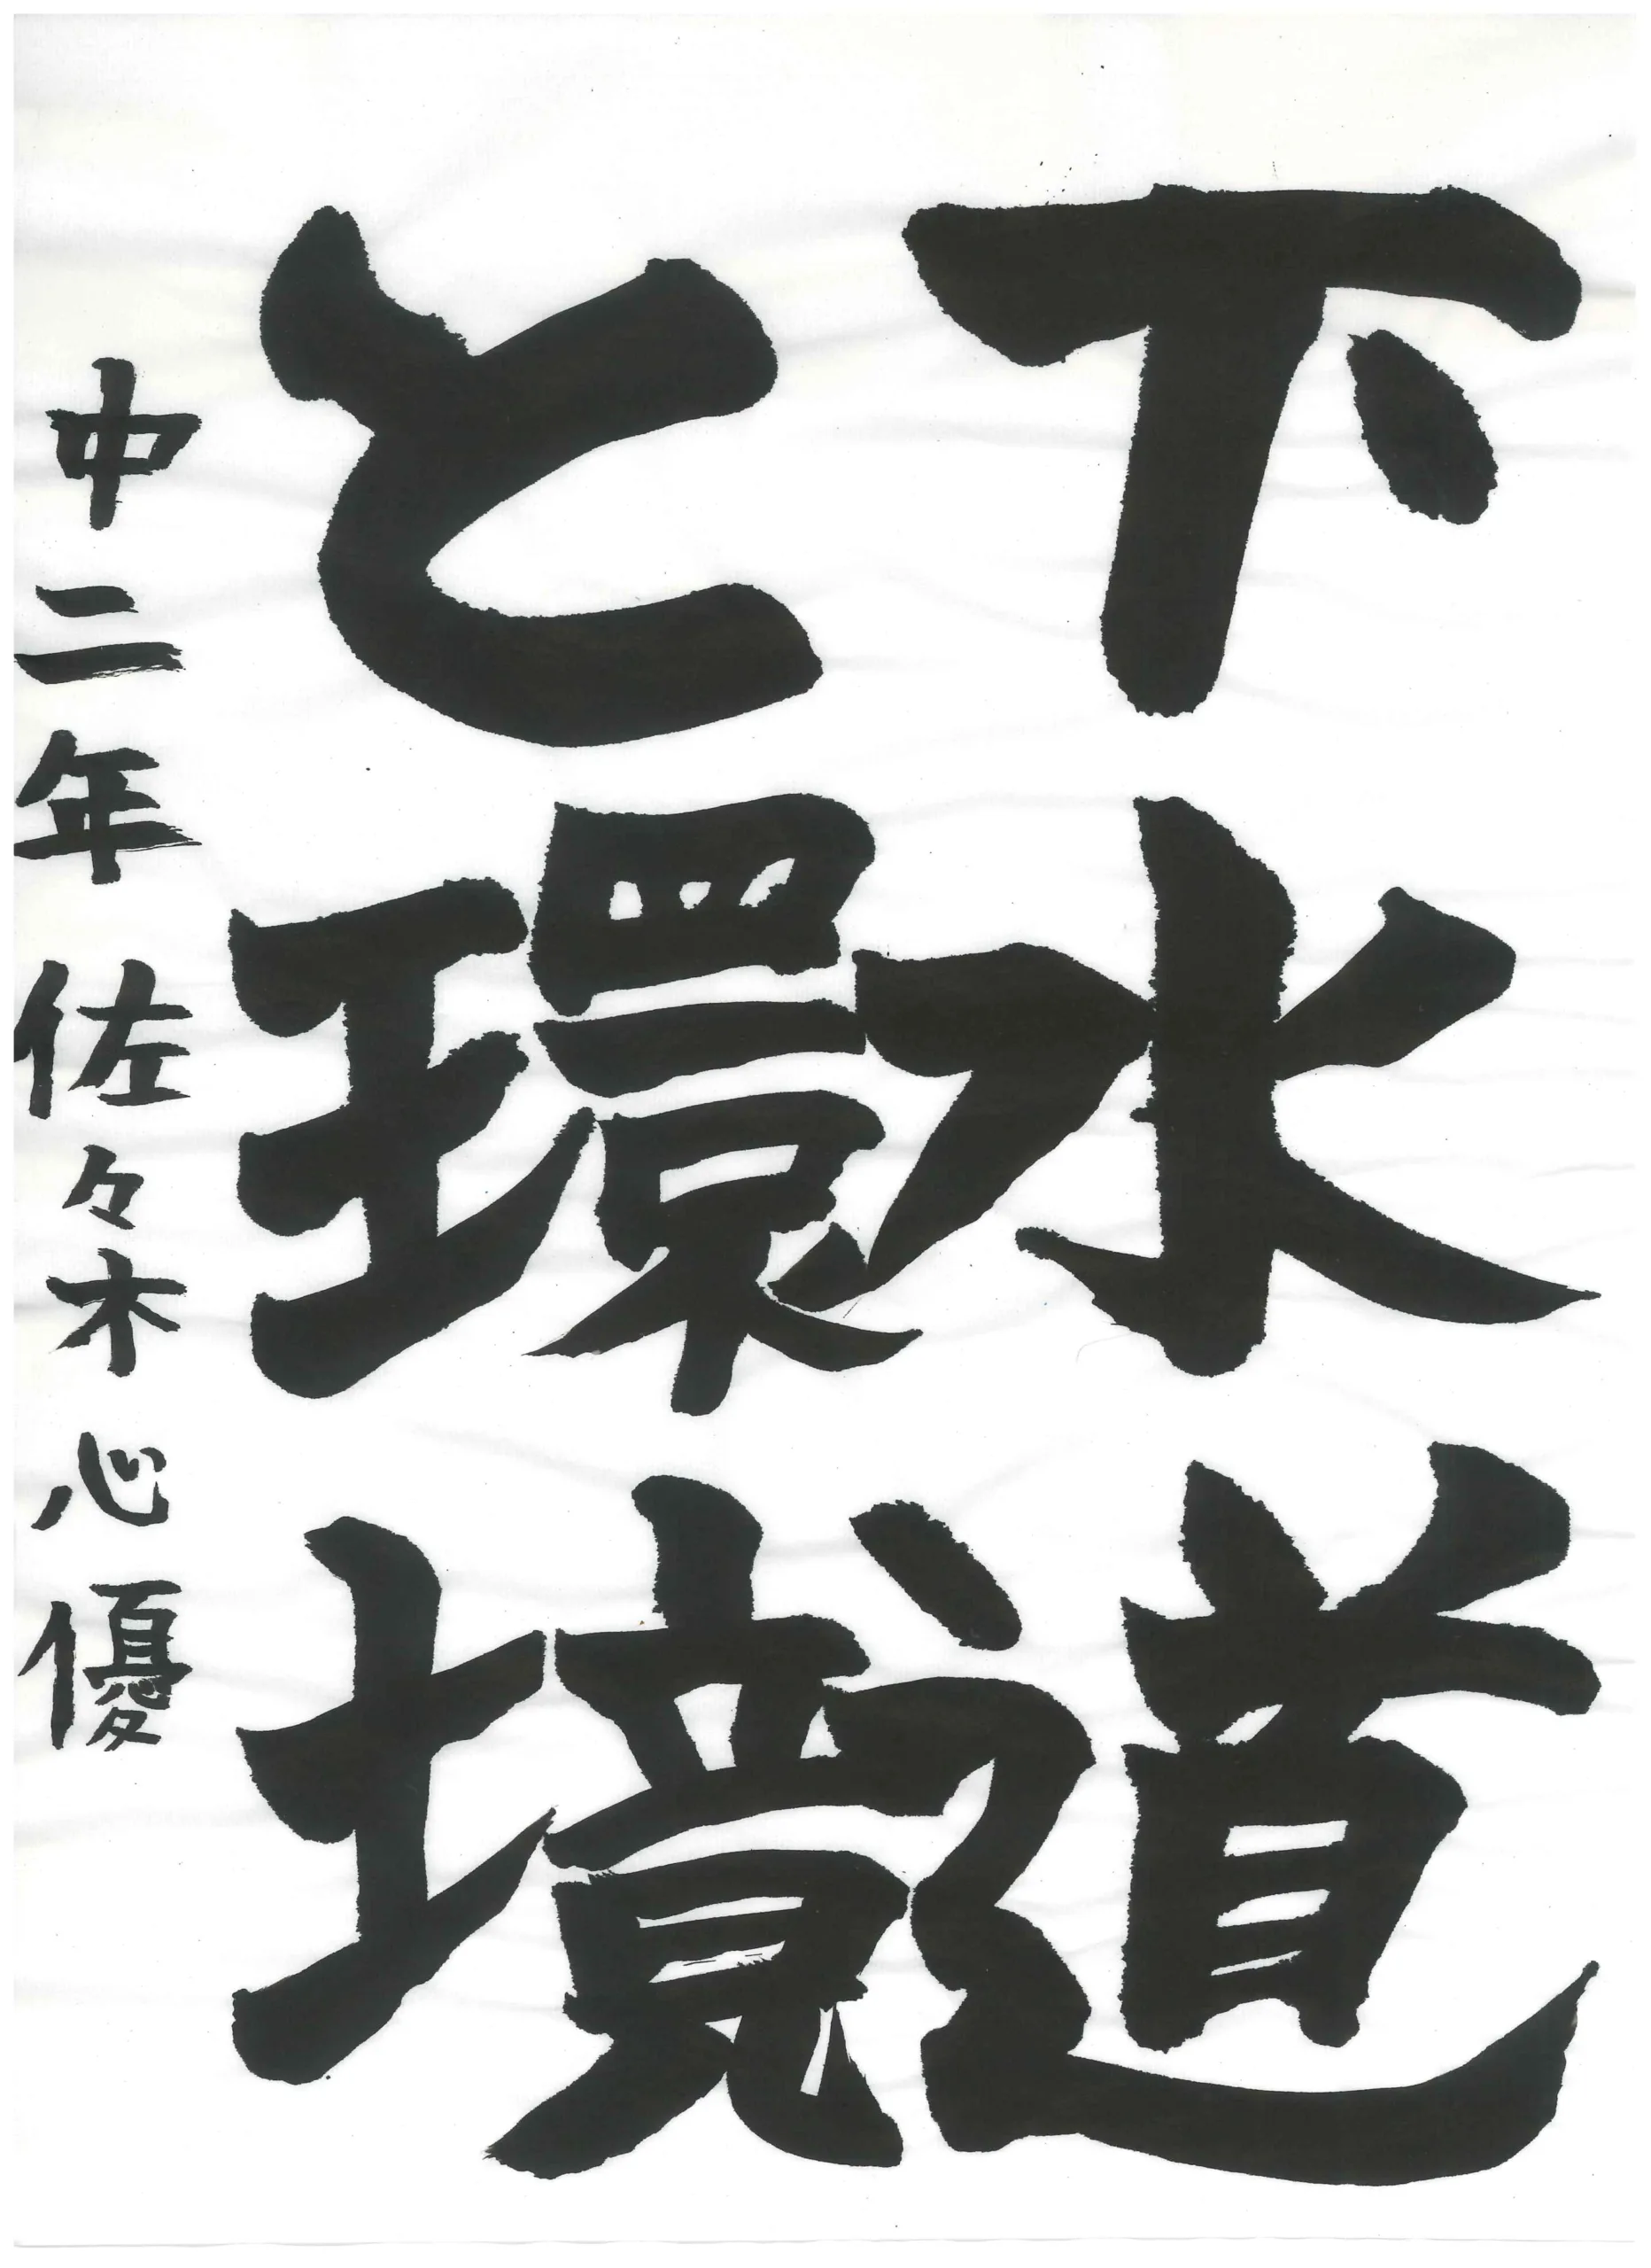 下水道
と環境
中二年 佐々木心優